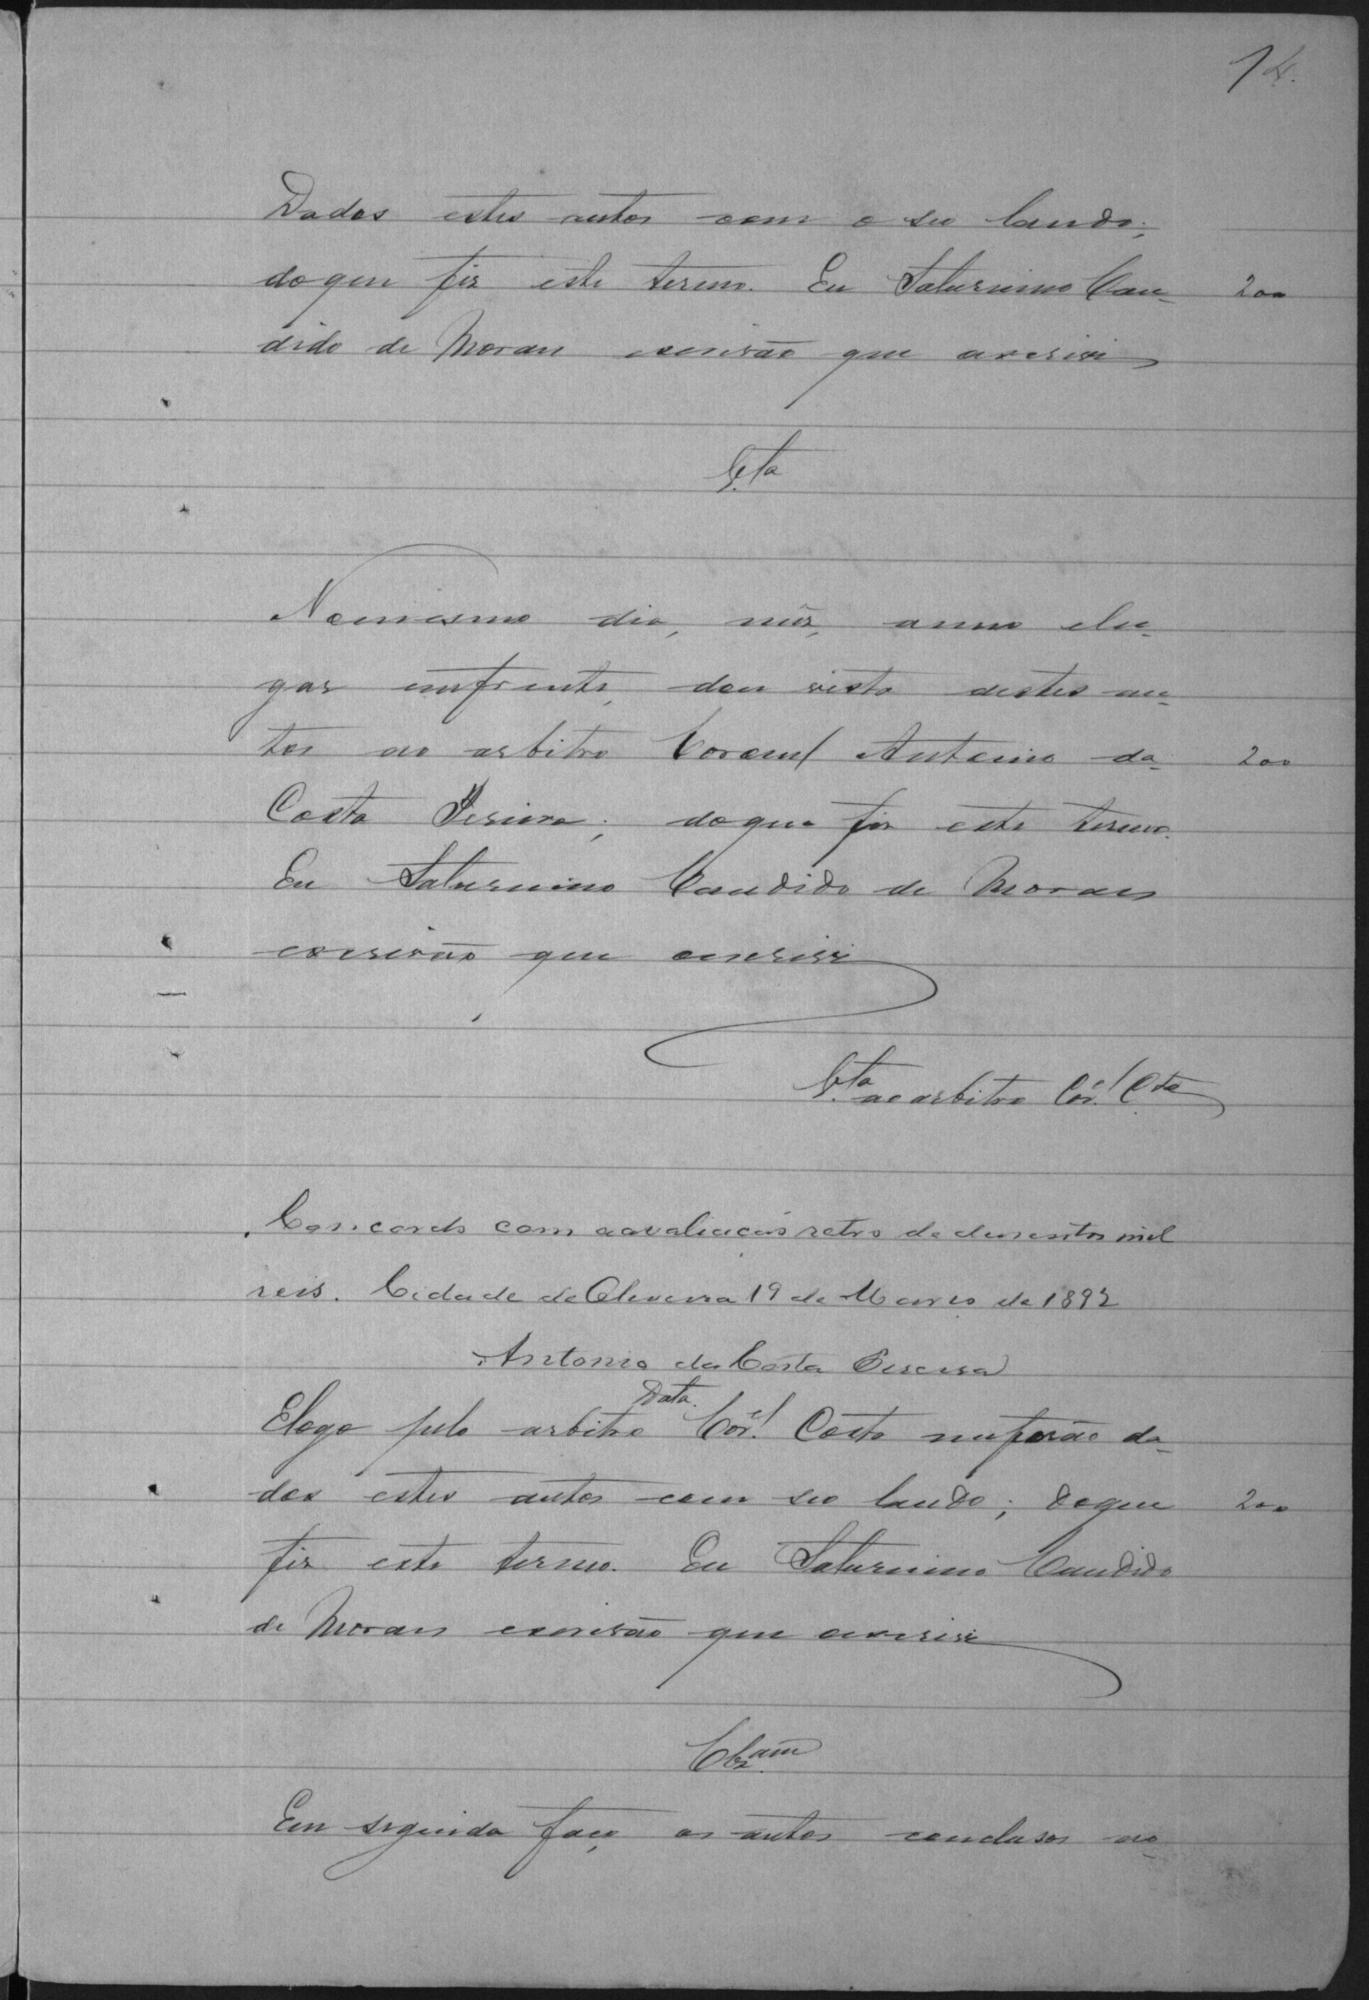 14.
Dados estes autos com o seu laudo;
do que fiz este termo. Eu Saturnino Can- 200
dido de Moraes escrivão que escrevi
V.ta
No mesmo dia, mês, anno e lu-
gar emfrente, dou vista destes au-
tos ao arbitro Coronel Antonio da 200
Costa Pereira; do que fiz este termo.
Eu Saturnino Candido de Moraes
escrivão que escrevi
V.ta ao arbitro Cor.el C.ta
Concordo com a avaliação retro de dusentos mil
reis. Cidade de Oliveira 19 de Março de 1892
Antonio da Costa Pereira
Data.
E logo pelo arbitro Cor.el Costa me forão da-
dos estes autos com seu laudo; do que 200
fiz este termo. Eu Saturnino Candido
de Moraes escrivão que escrevi
Clz.am
Em seguida faço os autos conclusos ao